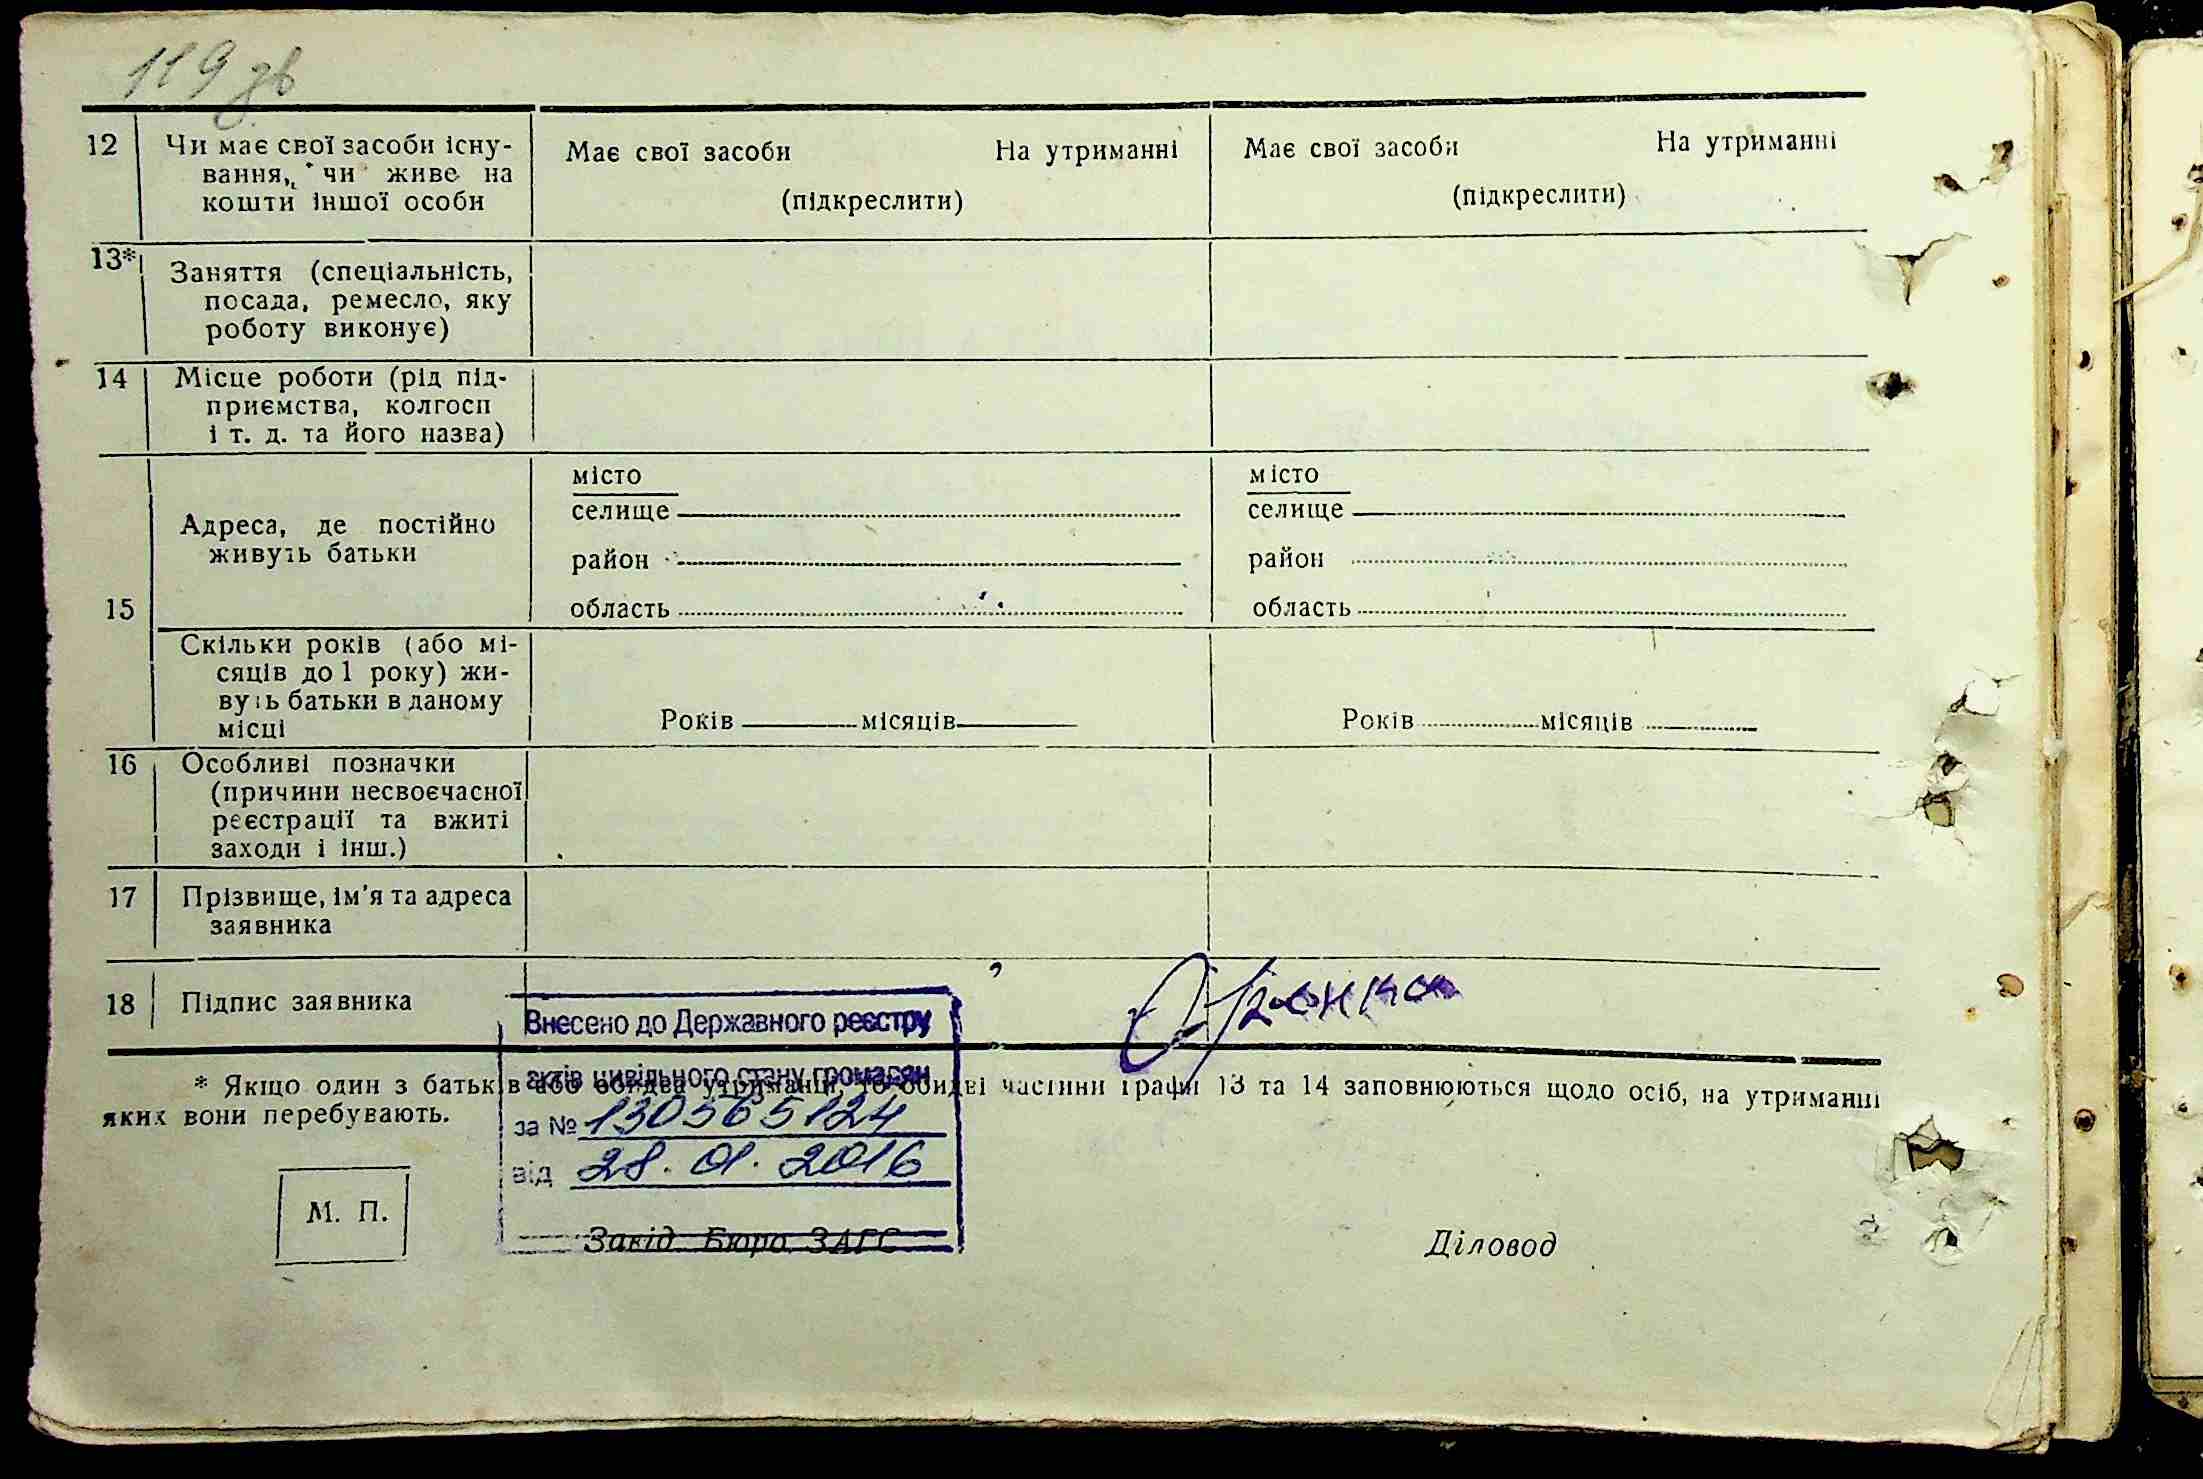 119 зв
12 Чи має свої засоби існу- Має свої засоби На утриманні Має свої засоби На утриманні
вання, чи живе на
кошти іншої особи (підкреслити) (підкреслити)
13* Заняття (спеціальність,
посада, ремесло, яку
роботу виконує)
14 Місце роботи (рід під-
приємства, колгосп
і т. д. та його назва)
місто місто
селище селище
Адреса, де постійно
живуть батьки
район район
15 область область
Скільки років (або мі-
сяців до 1 року) жи-
вуть батьки в даному
місці Років місяців Років місяців
16 Особливі позначки
(причини несвоєчасної
реєстрації та вжиті
заходи і інш.)
17 Прізвище, ім'я та адреса
заявника
18 Підпис заявника
Внесено до Державного реєстру
актів цивільного стану громадян
* Якщо один з батьків або обидва утриманці, то обидві частини графи 13 та 14 заповнюються щодо осіб, на утриманні
яких вони перебувають.
за № 130565124
від 28.01.2016
М. П.
Завід. Бюро ЗАГС Діловод